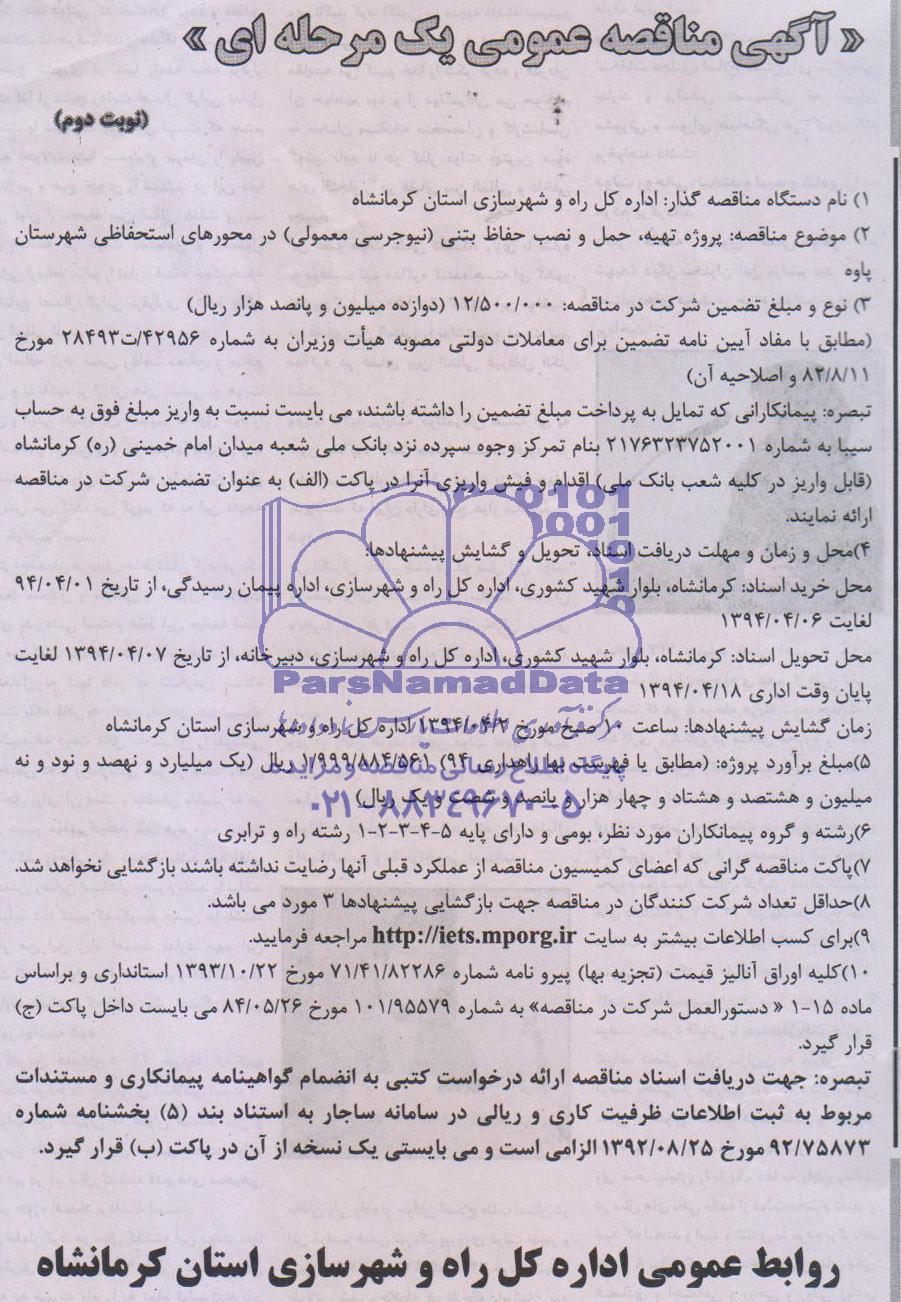 « آگهی مناقصه عمومی یک مرحله ای »
(نوبت دوم)
۱) نام دستگاه مناقصه گذار: اداره کل راه و شهرسازی استان کرمانشاه
۲) موضوع مناقصه: پروژه تهیه، حمل و نصب حفاظ بتنی (نیوجرسی معمولی) در محورهای استحفاظی شهرستان
پاوه
۳) نوع و مبلغ تضمین شرکت در مناقصه: ۱۲/۵۰۰/۰۰۰ (دوازده میلیون و پانصد هزار ریال)
(مطابق با مفاد آیین نامه تضمین برای معاملات دولتی مصوبه هیأت وزیران به شماره ۴۲۹۵۶/ت۲۸۴۹۳ مورخ
۸۲/۸/۱۱ و اصلاحیه آن)
تبصره: پیمانکارانی که تمایل به پرداخت مبلغ تضمین را داشته باشند، می بایست نسبت به واریز مبلغ فوق به حساب
سیبا به شماره ۲۱۷۶۳۲۳۷۵۲۰۰۱ بنام تمرکز وجوه سپرده نزد بانک ملی شعبه میدان امام خمینی (ره) کرمانشاه
(قابل واریز در کلیه شعب بانک ملی) اقدام و فیش واریزی آنرا در پاکت (الف) به عنوان تضمین شرکت در مناقصه
ارائه نمایند.
۴)محل و زمان و مهلت دریافت اسناد، تحویل و گشایش پیشنهادها:
محل خرید اسناد: کرمانشاه، بلوار شهید کشوری، اداره کل راه و شهرسازی، اداره پیمان رسیدگی، از تاریخ ۹۴/۰۴/۰۱
لغایت ۱۳۹۴/۰۴/۰۶
محل تحویل اسناد: کرمانشاه، بلوار شهید کشوری، اداره کل راه و شهرسازی، دبیرخانه، از تاریخ ۱۳۹۴/۰۴/۰۷ لغایت
پایان وقت اداری ۱۳۹۴/۰۴/۱۸
ParsNamadData
زمان گشایش پیشنهادها: ساعت ۱۰ صبح مورخ اداره کل راه و شهرسازی استان کرمانشاه
۵)مبلغ برآورد پروژه: (مطابق با فهرست بها راهداری ۹۴) ۱/۹۹۹/۸۸۴/۵۶۱ ریال (یک میلیارد و نهصد و نود و نه
پایگاه اطلاع رسانی مناقصه و مزایده
میلیون و هشتصد و هشتاد و چهار هزار و پانصد و شصت و یک ریال)
۰۲۱-۸۸۳۴۹۶۷۰-۵
۶)رشته و گروه پیمانکاران مورد نظر، بومی و دارای پایه ۵-۴-۳-۲-۱ رشته راه و ترابری
۷)پاکت مناقصه گرانی که اعضای کمیسیون مناقصه از عملکرد قبلی آنها رضایت نداشته باشند بازگشایی نخواهد شد.
۸)حداقل تعداد شرکت کنندگان در مناقصه جهت بازگشایی پیشنهادها ۳ مورد می باشد.
۹)برای کسب اطلاعات بیشتر به سایت http://iets.mporg.ir مراجعه فرمایید.
۱۰)کلیه اوراق آنالیز قیمت (تجزیه بها) پیرو نامه شماره ۷۱/۴۱/۸۲۲۸۶ مورخ ۱۳۹۳/۱۰/۲۲ استانداری و براساس
ماده ۱۵-۱ « دستورالعمل شرکت در مناقصه» به شماره ۱۰۱/۹۵۵۷۹ مورخ ۸۴/۰۵/۲۶ می بایست داخل پاکت (ج)
قرار گیرد.
تبصره: جهت دریافت اسناد مناقصه ارائه درخواست کتبی به انضمام گواهینامه پیمانکاری و مستندات
مربوط به ثبت اطلاعات ظرفیت کاری و ریالی در سامانه ساجار به استناد بند (۵) بخشنامه شماره
۹۲/۷۵۸۷۳ مورخ ۱۳۹۲/۰۸/۲۵ الزامی است و می بایستی یک نسخه از آن در پاکت (ب) قرار گیرد.
روابط عمومی اداره کل راه و شهرسازی استان کرمانشاه